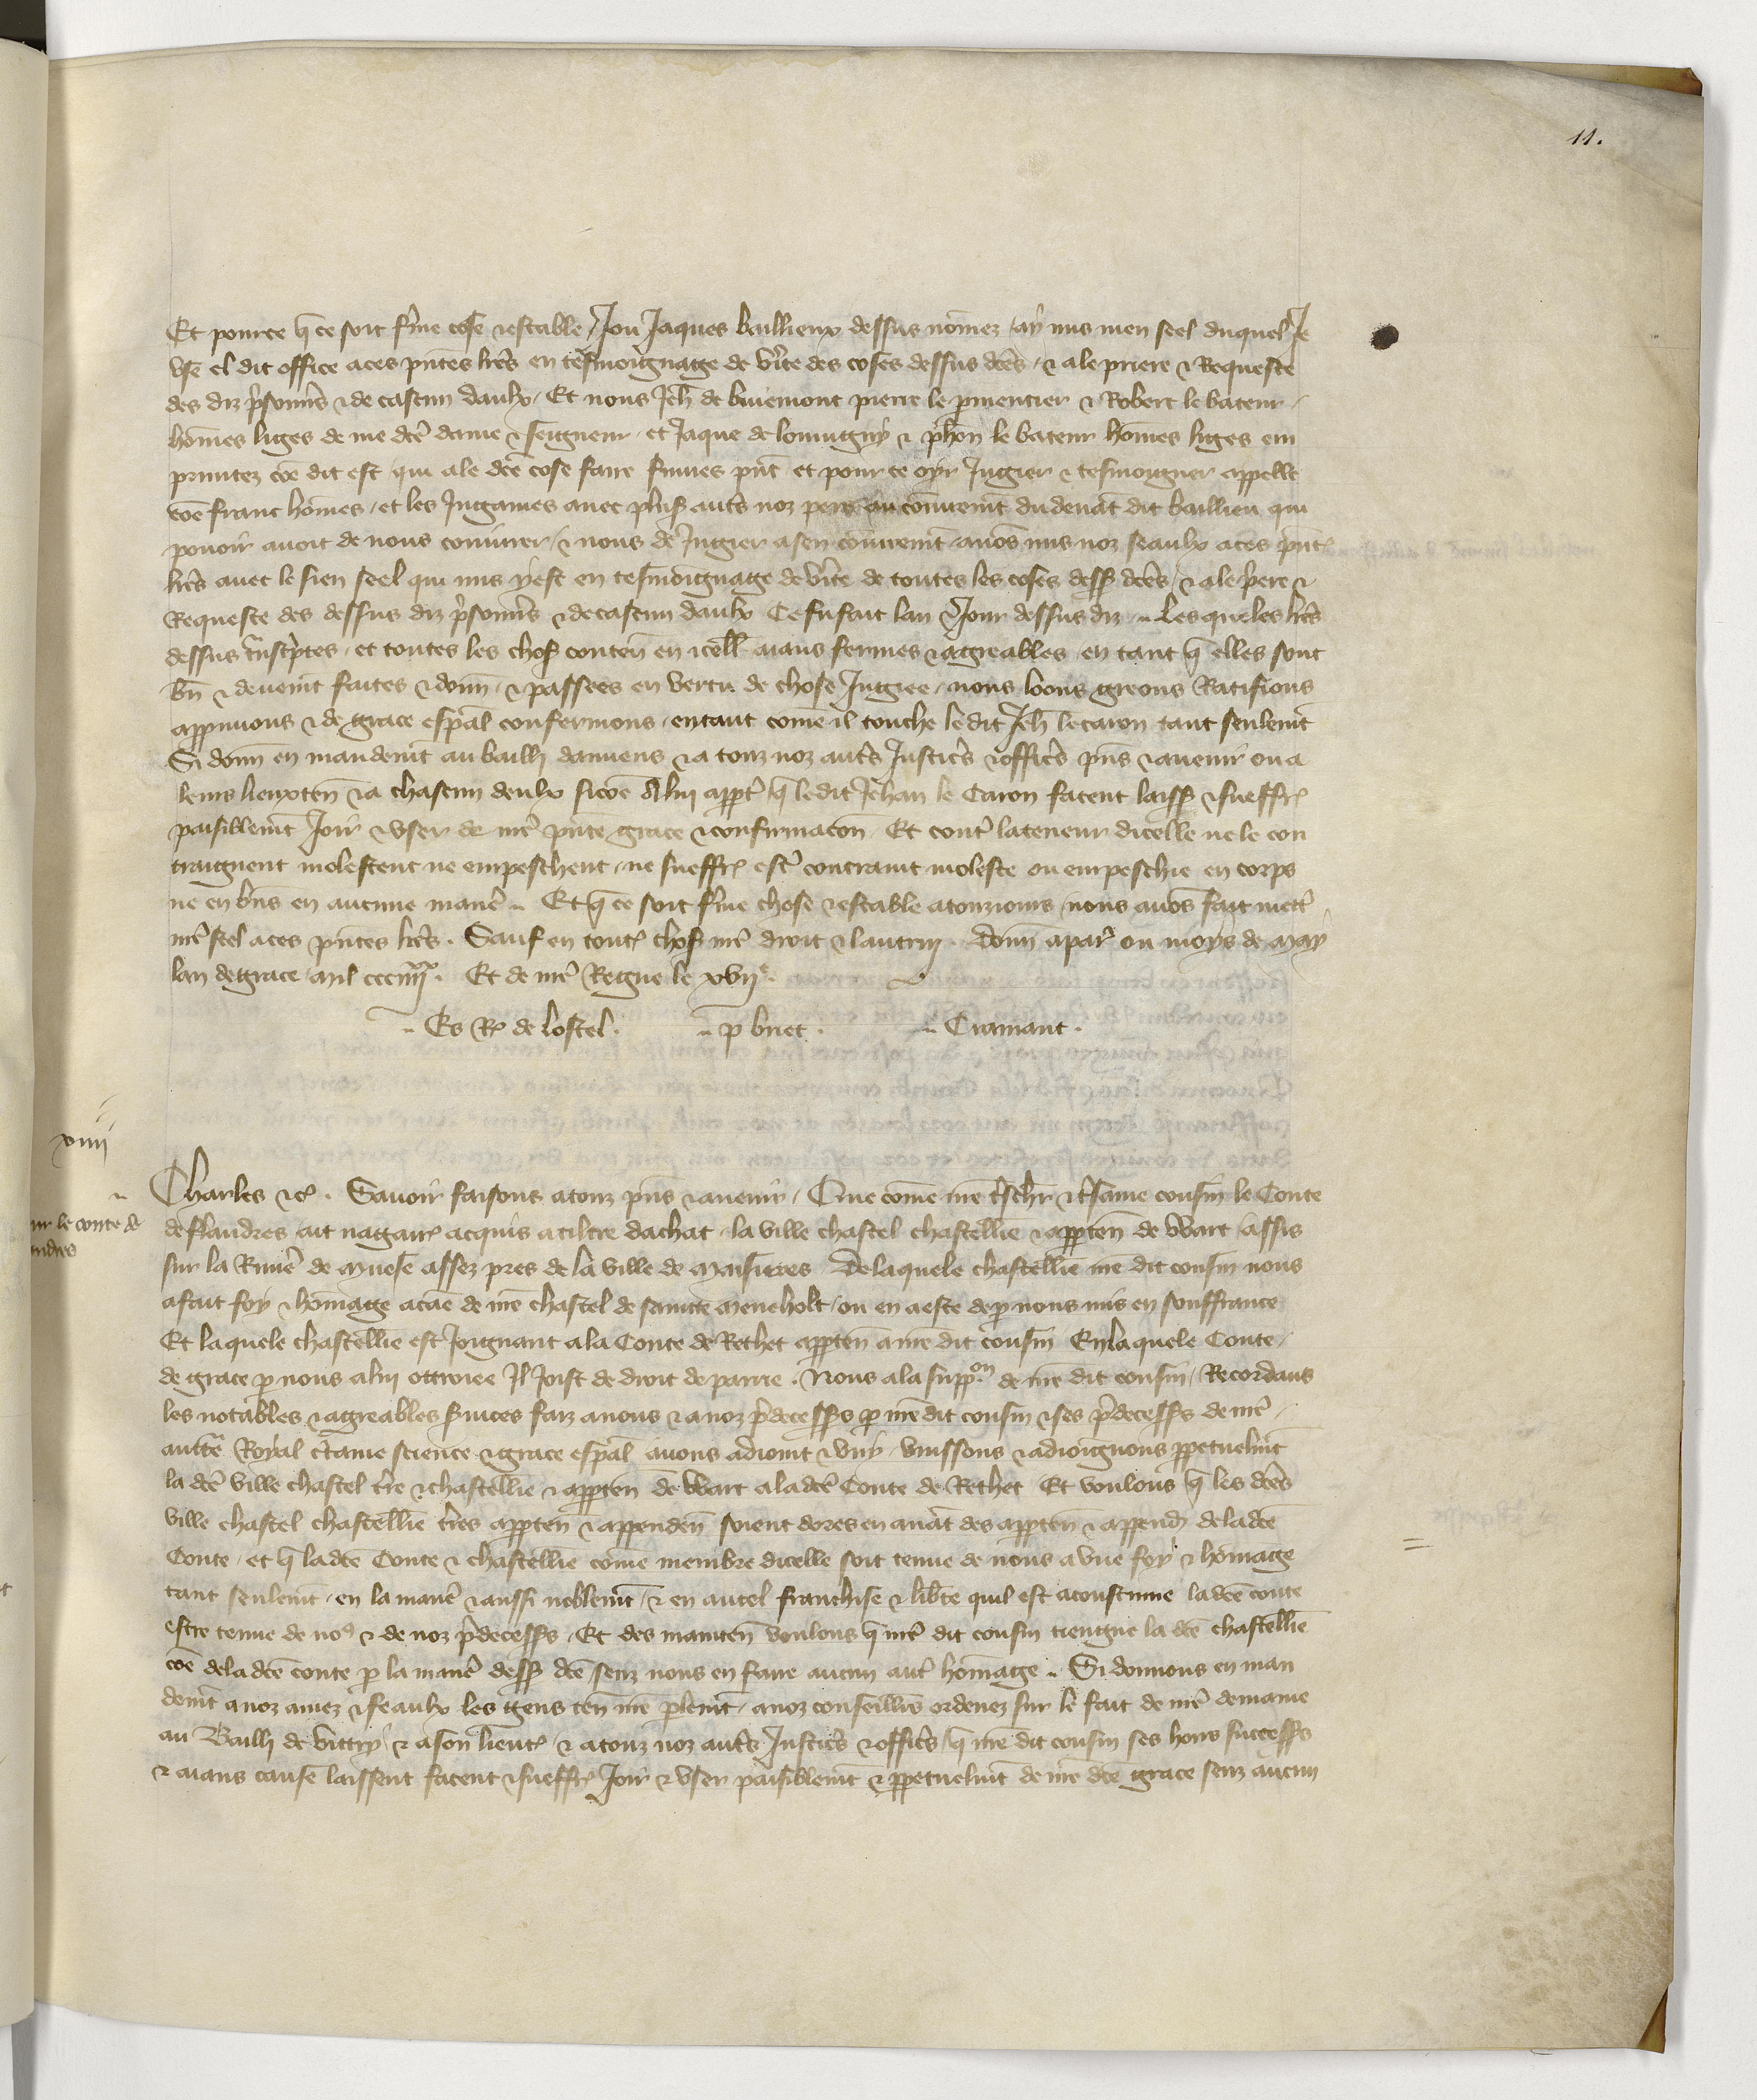 11.
Et pource q̄ ce soit f'me cose ⁊ estable / Jou Jaques baillieux dessus nōmez / ay mis men seel duquel Je
vse el dit office a ces p̄ntes l'res en tesmoignage de v'ite des coses dessus d'tes / ⁊ a le priere ⁊ Requeste
des diz p'sonniers ⁊ de cascun daulx / Et nous Jeh̄ de buiemont pierre le pmentier ⁊ Robert le bateur /
hōmes liges de me d'te dame ⁊ seigneur / et Jaque de ⁊ le bateur hōmes liges em
pruntez cōe dit est / qui a le d'te cose faire fumes p̄nt et pour ce oyr Jugier ⁊ tesmoigner appelle
cōe franc hōmes / et les Jugames auec plus' aut's noz pers au coniurem̄t du deuāt dit baillieu qui
pouoir auoit de nous coniurer / ⁊ nous de Jugier a sen coniurem̄t / auōs mis noz seaulx a ces p̄ntes
l'res auec le sien seel qui mis y est en tesmoignage de v'ite de toutes les coses dess' d'tes / ⁊ a le p'ere ⁊
Requeste des dessus diz p'sonniers ⁊ de cascun daulx Ce fu fait lan ⁊ Jour dessus diz .. Les queles l'res
dessus t'nsc'ptes / et toutes les chos' conten̄ en icell' aians fermes ⁊ agreables en tant q̄ elles sont
bn̄ ⁊ deuem̄t faites ⁊ donn̄ / ⁊ passees en vertu de chose Jugiee / nous loons greons Ratifions
appruuons ⁊ de grace esp̄al confermons / entant come il touche le dit Jeh̄ le caron tant seulem̄t
Si donn̄ en mandem̄t au bailli damiens ⁊ a touz noz aut's Justic's ⁊ offic's p̄ns ⁊ auenir ou a
leurs lieuxten̄ ⁊ a chascun deulx sicōe A lui appt' q̄ le dit Jehan le Caron facent laiss' ⁊ sueffr'
paisiblem̄t Joir ⁊ vser de n're p̄nte grace ⁊ confirmacōn Et cont' la teneur dicelle ne le con
traignent molestent ne empeschent / ne sueffr' est' contraint moleste ou empeschie en corps
ne en bn̄s en aucune manie' .. Et q̄ ce soit f'me chose ⁊ estable a touziours / nous auōs fait mett'
n're seel a ces p̄ntes l'res . Sauf en tout' chos' n're droit ⁊ lautruy . Donn̄ a par' ou moys de may
lan de grace mil ccc iiii^xx . Et de n're Regne le xvij^e .
.. Es R^es de lostel . .. p buet . .. Cramant .
xiiii
ur le conte de
andres
Charles ⁊c^a . Sauoir faisons a touz p̄ns ⁊ auenir / Que come n're t'sch'r ⁊ t'same cousin le Conte
de flandres / ait nagair' acquis a tiltre dachat / la ville chastel chastellīe ⁊ apparten̄ de Wart / assis
sur la Riuie' de muese assez pres de la ville de maisieres De laquele chastellīe n're dit cousin nous
a fait foy ⁊ hōmage a cāe de n're chastel de saincte meneholt / ou en a este de p nous mis en souffrance
Et laquele chastellīe est Joignant a la Conte de Rethet apparten̄ a n're dit cousin En laquele Conte /
de grace p nous a lui ottroiee Il Joist de droit de parrie . Nous a la supp^on de n're dit cousin / Recordans
les notables ⁊ agreables s'uices faiz a nous ⁊ a noz p'decess's p n're dit cousin ⁊ ses p'decess's de n're /
auct'te Royal c'taine science ⁊ grace esp̄al auons adioint ⁊ vny / vnissons ⁊ adioignons ppetuelm̄t
la d'te ville chastel t're ⁊ chastellīe ⁊ apparten̄ de Wart a la d'te Conte de Rethet Et voulons q̄ les d'tes
ville chastel chastellīe t'res apparten̄ ⁊ appenden̄ soient dores en auāt des apparten̄ ⁊ append' de la d'te
Conte / et q̄ la d'te Conte ⁊ chastellīe come membre dicelle soit tenue de nous a vne foy ⁊ hōmage
tant seulem̄t / en la manie' ⁊ aussi noblem̄t / ⁊ en autel franchise ⁊ lib'te quil est acoustume la d'te conte
estre tenue de no^9 ⁊ de noz p'decess's / Et des mainten̄ voulons q̄ n're dit cousin tiengne la d'te chastellīe
cōe de la d'te conte p la manie' dess' d'te / senz nous en faire aucun aut' hōmage .. Si donnons en man
dem̄t a noz amez ⁊ feaulx les gens ten̄ n're plem̄t / a noz conseillie's ordenez sur le fait de n're demaine
au Bailli de vittry ⁊ a son lieut' ⁊ a touz noz aut's Justic's ⁊ offic's / q̄ n're dit cousin ses hoirs success's
⁊ aians cause laissent facent ⁊ sueffr' Joir ⁊ vser paisiblem̄t ⁊ ppetuelm̄t de n're d'te grace senz aucun